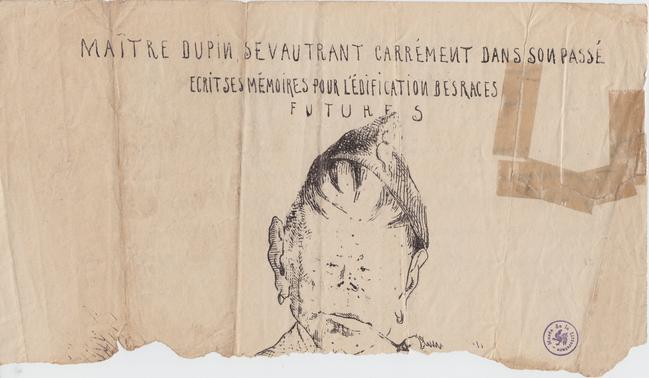 MAÎTRE DUPIN SEVAUTRANT CARRÉMENT DANS SON PASSÉ
ECRIT SES MÉMOIRES POUR L'ÉDIFICATION DES RACES
FUTURES